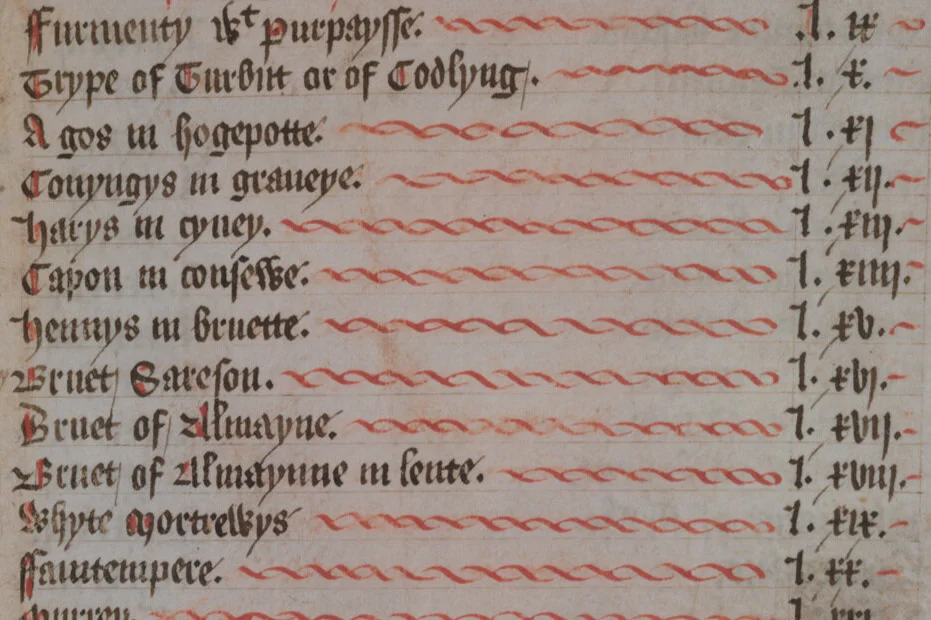 ffurmenty wt purpaysse. l. ix
Trype of Turbut or of Codlyng. l. x.
A gos in hogepotte. l. xi
Conyngys in graueye. l. xii.
harys in cyney. l. xiii.
Capon in consewe. l. xiiii.
hennys in bruette. l. xv.
Bruet Sareson. l. xvi.
Bruet of Almayne. l. xvii.
Bruet of Almaynne in lente. l. xviii.
Whyte Mortrewys l. xix.
ffauntempere. l. xx.
Murrey. l. xxi